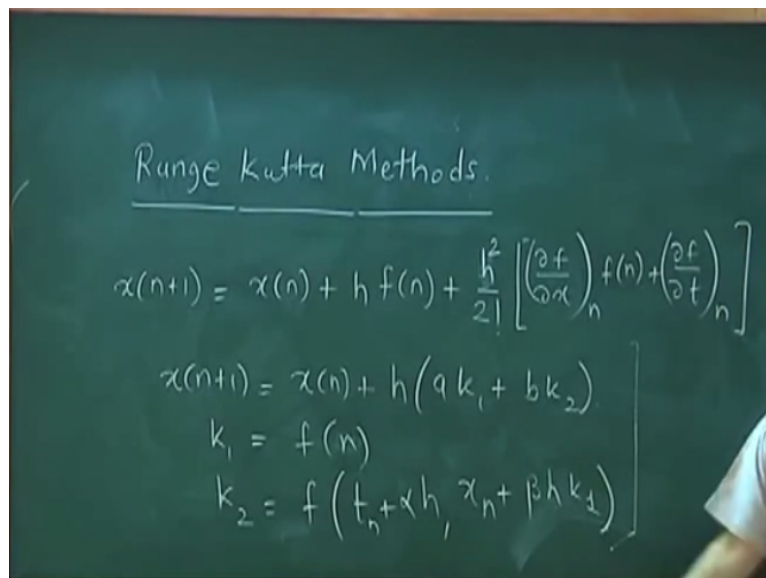 Runge Kutta Methods.
x(n+1) = x(n) + h f(n) + h²/2! [(∂f/∂x)ₙ f(n) + (∂f/∂t)ₙ]
x(n+1) = x(n) + h(ak₁ + bk₂)
k₁ = f(n)
k₂ = f(tₙ+αh, xₙ+βhk₁)